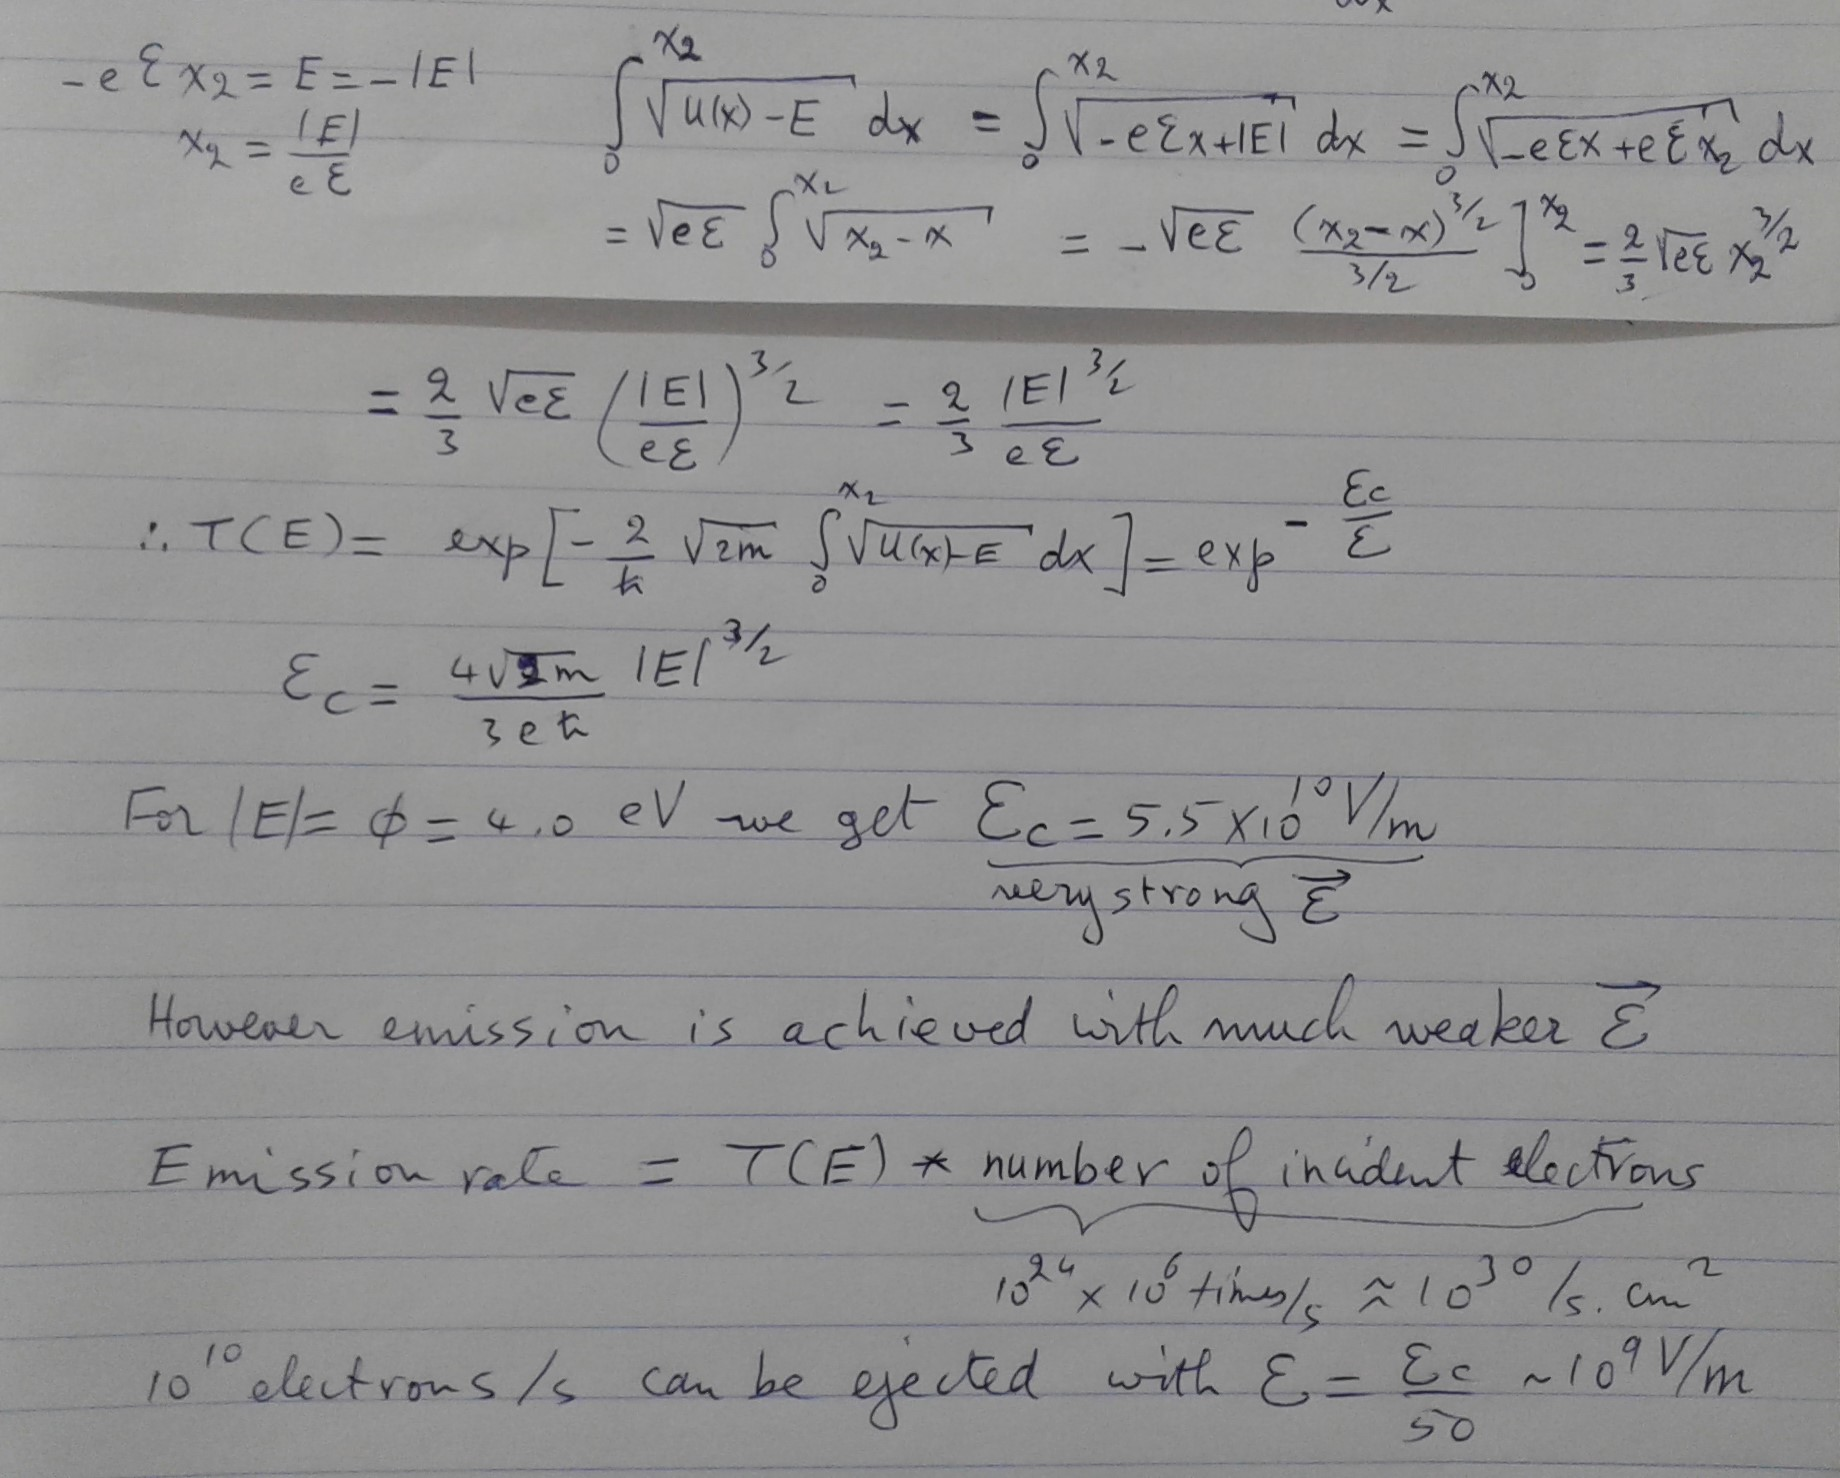 -eℰx₂ = E = -|E|
x₂ = |E| / eℰ
∫₀^x₂ √(U(x) - E) dx = ∫₀^x₂ √(-eℰx + |E|) dx = ∫₀^x₂ √(-eℰx + eℰx₂) dx
= √(eℰ) ∫₀^x₂ √(x₂ - x) = -√(eℰ) (x₂ - x)^3/2 / 3/2 ]₀^x₂ = 2/3 √(eℰ) x₂^3/2
= 2/3 √(eℰ) (|E| / eℰ)^3/2 = 2/3 |E|^3/2 / eℰ
∴ T(E) = exp[-2/ħ √(2m) ∫₀^x₂ √(U(x) - E) dx] = exp^-ℰc/ℰ
ℰc = 4√(2m) / 3eħ |E|^3/2
For |E| = ϕ = 4.0 eV we get ℰc = 5.5 x 10^10 V/m
very strong ℰ⃗
However emission is achieved with much weaker ℰ⃗
Emission rate = T(E) * number of incident electrons
10^24 x 10^6 times/s ≈ 10^30 /s. cm^2
10^10 electrons/s can be ejected with ℰ = ℰc / 50 ~ 10^9 V/m